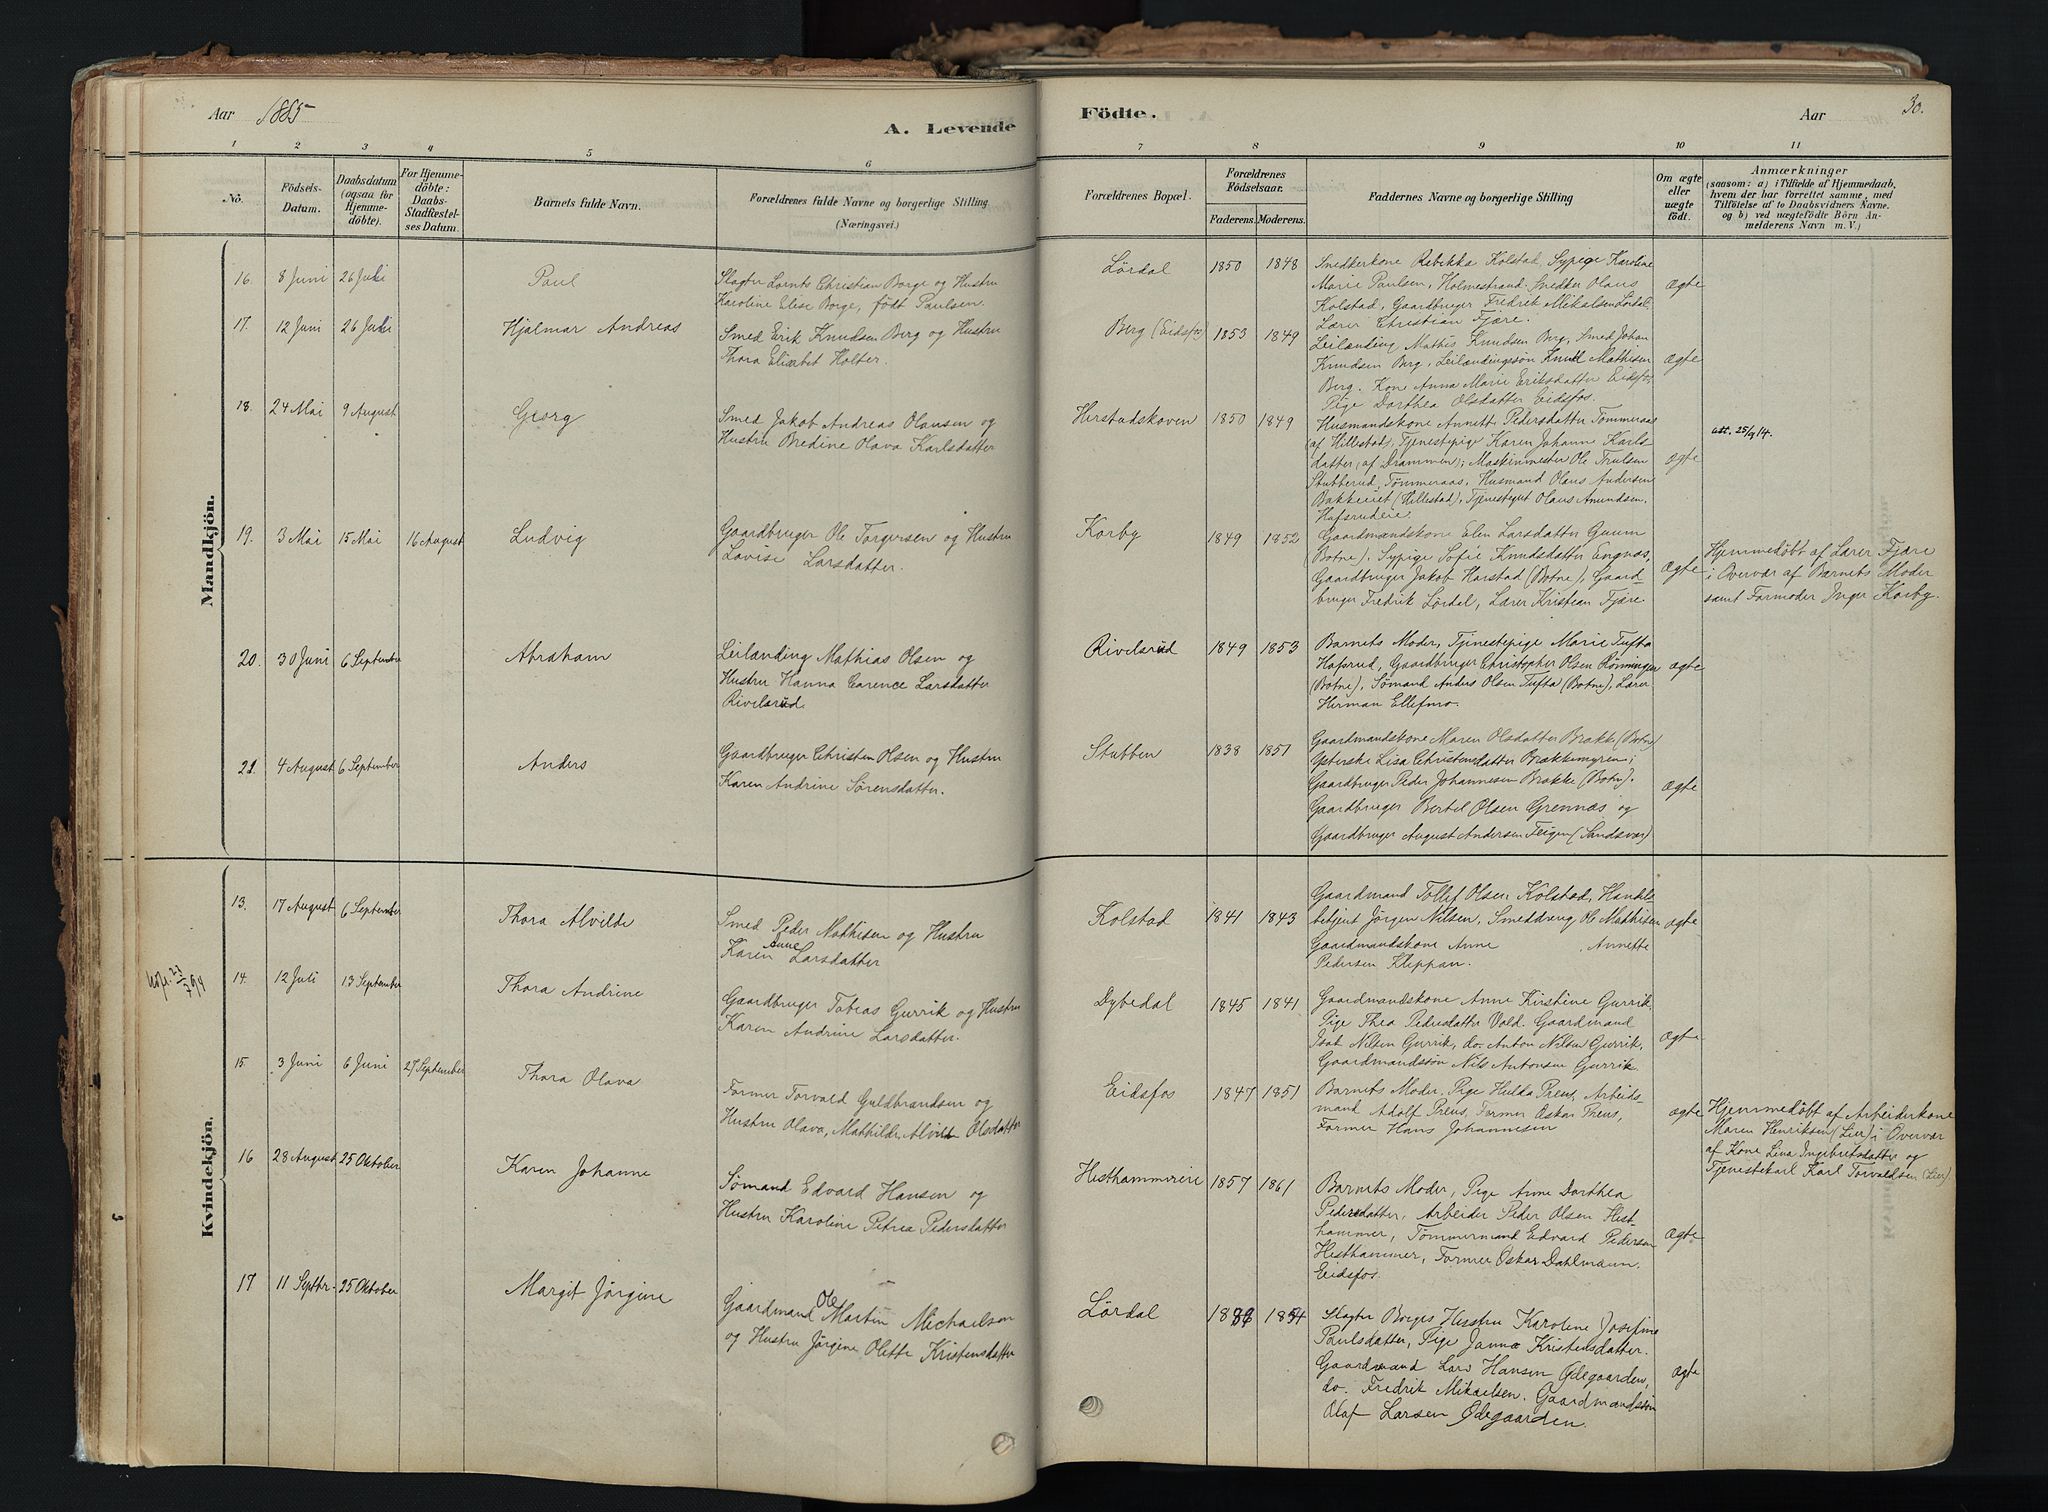 Aar 1885
A. Levende
Födte.
Aar
30.
1
2
3
4
5
6
7
8
9
10
11
No.
Födsels-
Datum.
Daabsdatum
(ogsaa for
Hjemme-
döbte).
For Hjemme-
döbte:
Daabs-
Stadfæstel-
ses Datum.
Barnets fulde Navn.
Forældrenes fulde Navne og borgerlige Stilling
(Næringsvei.)
Forældrenes Bopæl.
Forældrenes
Födselsaar.
Faderens. Moderens.
Faddernes Navne og borgerlige Stilling
Om ægte
eller
uægte
födt.
Anmærkninger
(saasom: a) i Tilfælde af Hjemmedaab,
hvem der har forrettet samme, med
Tilföielse af to Daabsvidners Navne.
og b) ved uægtefödte Börn An-
melderens Navn m. V.)
Mandkjön.
16. 8 Juni 26 Juli Paul
Slagter Lornts Christian Borge og Hustru
Karoline Elise Borge, født Paulsen.
Lördal 1850 1848
Snedkerkone Rebekka Kolstad, Sypige Karoline
Marie Paulsen, Holmestrand. Snedker Olaus
Kolstad, Gaardbruger Fredrik Mikalsen Lördal
Lærer Christian Fjære.
Ægte
17. 12 Juni 26 Juli Hjalmar Andreas
Smed Erik Knudsen Berg og Hustru
Thora Elisabet Holter.
Berg (Eidsfos) 1853 1849
Leilænding Mathis Knudsen Berg, Smed Johan
Knudsen Berg, Leilændingssøn Knud Mathisen
Berg. Kone Anna Marie Eriksdatter Eidsfos,
Pige Dorthea Olsdatter Eidsfos.
Ægte
18. 24 Mai 9 August Georg
Smed Jakob Andreas Olausen og
Hustru Bredine Olava Karlsdatter
Herstadskoven 1850 1849
Husmandskone Annette Pedersdatter Tømmeraas
(af Hillestad), Tjenestepige Karen Johanne Karls-
datter (af Drammen); Maskinmester Ole Trulsen
Stubberud, Tømmeraas, Husmand Olaus Andersen
Bakkeeiet (Hillestad), Tjenestegut Olaus Amundsen,
Hafsrudeie.
Ægte
att. 25/9 14.
19. 3 Mai 15 Mai 16 August Ludvig
Gaardbruger Ole Torgersen og Hustru
Lovise Larsdatter.
Korby 1849 1852
Gaardmandskone Elen Larsdatter Guum
(Botne), Sypige Sofie Knudsdatter Engnæs,
Gaardbruger Jakob Harstad (Botne), Gaard-
bruger Fredrik Lördal, Lærer Kristian Fjære.
Ægte
Hjemmedøbt af Lærer Fjære
i Overvær af Barnets Moder
samt Farmoder Inger Korby.
20. 30 Juni 6 September Abraham
Leilænding Mathias Olsen og
Hustru Hanna Carence Larsdatter
Rivelsrud.
Rivelsrud 1849 1853
Barnets Moder, Tjenestepige Marie Tufta
Hafsrud, Gaardbruger Christopher Olsen Rønningen
(Botne), Sømand Anders Olsen Tufta (Botne), Lærer
Herman Ellefmo.
Ægte
21. 4 August 6 September Anders
Gaardbruger Christen Olsen og Hustru
Karen Andrine Sørensdatter.
Stubben 1838 1851
Gaardmandskone Maren Olsdatter Brække (Botne)
Ysterske Lisa Christensdatter Brækkemyren;
Gaardbruger Peder Johannesen Brække (Botne).
Gaardbruger Bertel Olsen Grennæs og
Gaardbruger August Andersen Teigen (Sandsvær)
Ægte
Kvindekjön.
13. 17 August 6 September Thora Alvilde
Smed Peder Mathisen og Hustru
Karen Anne Larsdatter
Kolstad 1841 1843
Gaardmand Tollef Olsen Kolstad, Handels-
betjent Jørgen Nilsen, Smeddreng Ole Mathisen
Gaardmandskone Anne Annette
Pedersen Klippan.
Ægte
23/7 94
14. 12 Juli 13 September Thora Andrine
Gaardbruger Tobias Gurrik og Hustru
Karen Andrine Larsdatter.
Dybedal 1845 1841
Gaardmandskone Anne Kirstine Gurrik.
Pige Thea Pedersdatter Vold. Gaardmand
Isak Nilsen Gurrik, do. Anton Nilsen Gurrik,
Gaardmandssøn Nils Antonsen Gurrik.
Ægte
15. 3 Juni 6 Juni 27 September Thora Olava
Former Torvald Guldbrandsen og
Hustru Olava, Mathilde Alvilde Olsdatter
Eidsfos 1847 1851
Barnets Moder, Pige Hulda Preus, Arbeids-
mand Adolf Preus, Former Oskar Preus,
Former Hans Johannesen
Ægte
Hjemmedøbt af Arbeiderkone
Maren Henriksen (Lier) i Overvær
af Kone Lina Ingebretsdatter og
Tjenestekarl Karl Torvaldsen (Lier)
16 28 August 25 Oktober Karen Johanne
Sømand Edvard Hansen og
Hustru Karoline Petrea Pedersdatter
Hesthammereie 1857 1861
Barnets Moder, Pige Anne Dorthea
Pedersdatter, Arbeider Peder Olsen Hest-
hammer, Tømmermand Edvard Pedersen
Hesthammer, Former Oskar Dahlmann.
Eidsfos.
Ægte
17 11 Septbr. 25 Oktober Margit Jørgine
Gaardmand Ole Martin Michaelsen
og Hustru Jørgine Olette Kristensdatter
Lördal 1854
Slagter Borges Hustru Karoline Josefine
Paulsdatter, Pige Janna Kristensdatter.
Gaardmand Lars Hansen Ødegaarden,
do. Fredrik Mikaelsen. Gaardmandssøn
Olaf Larsen Ødegaarden.
Ægte